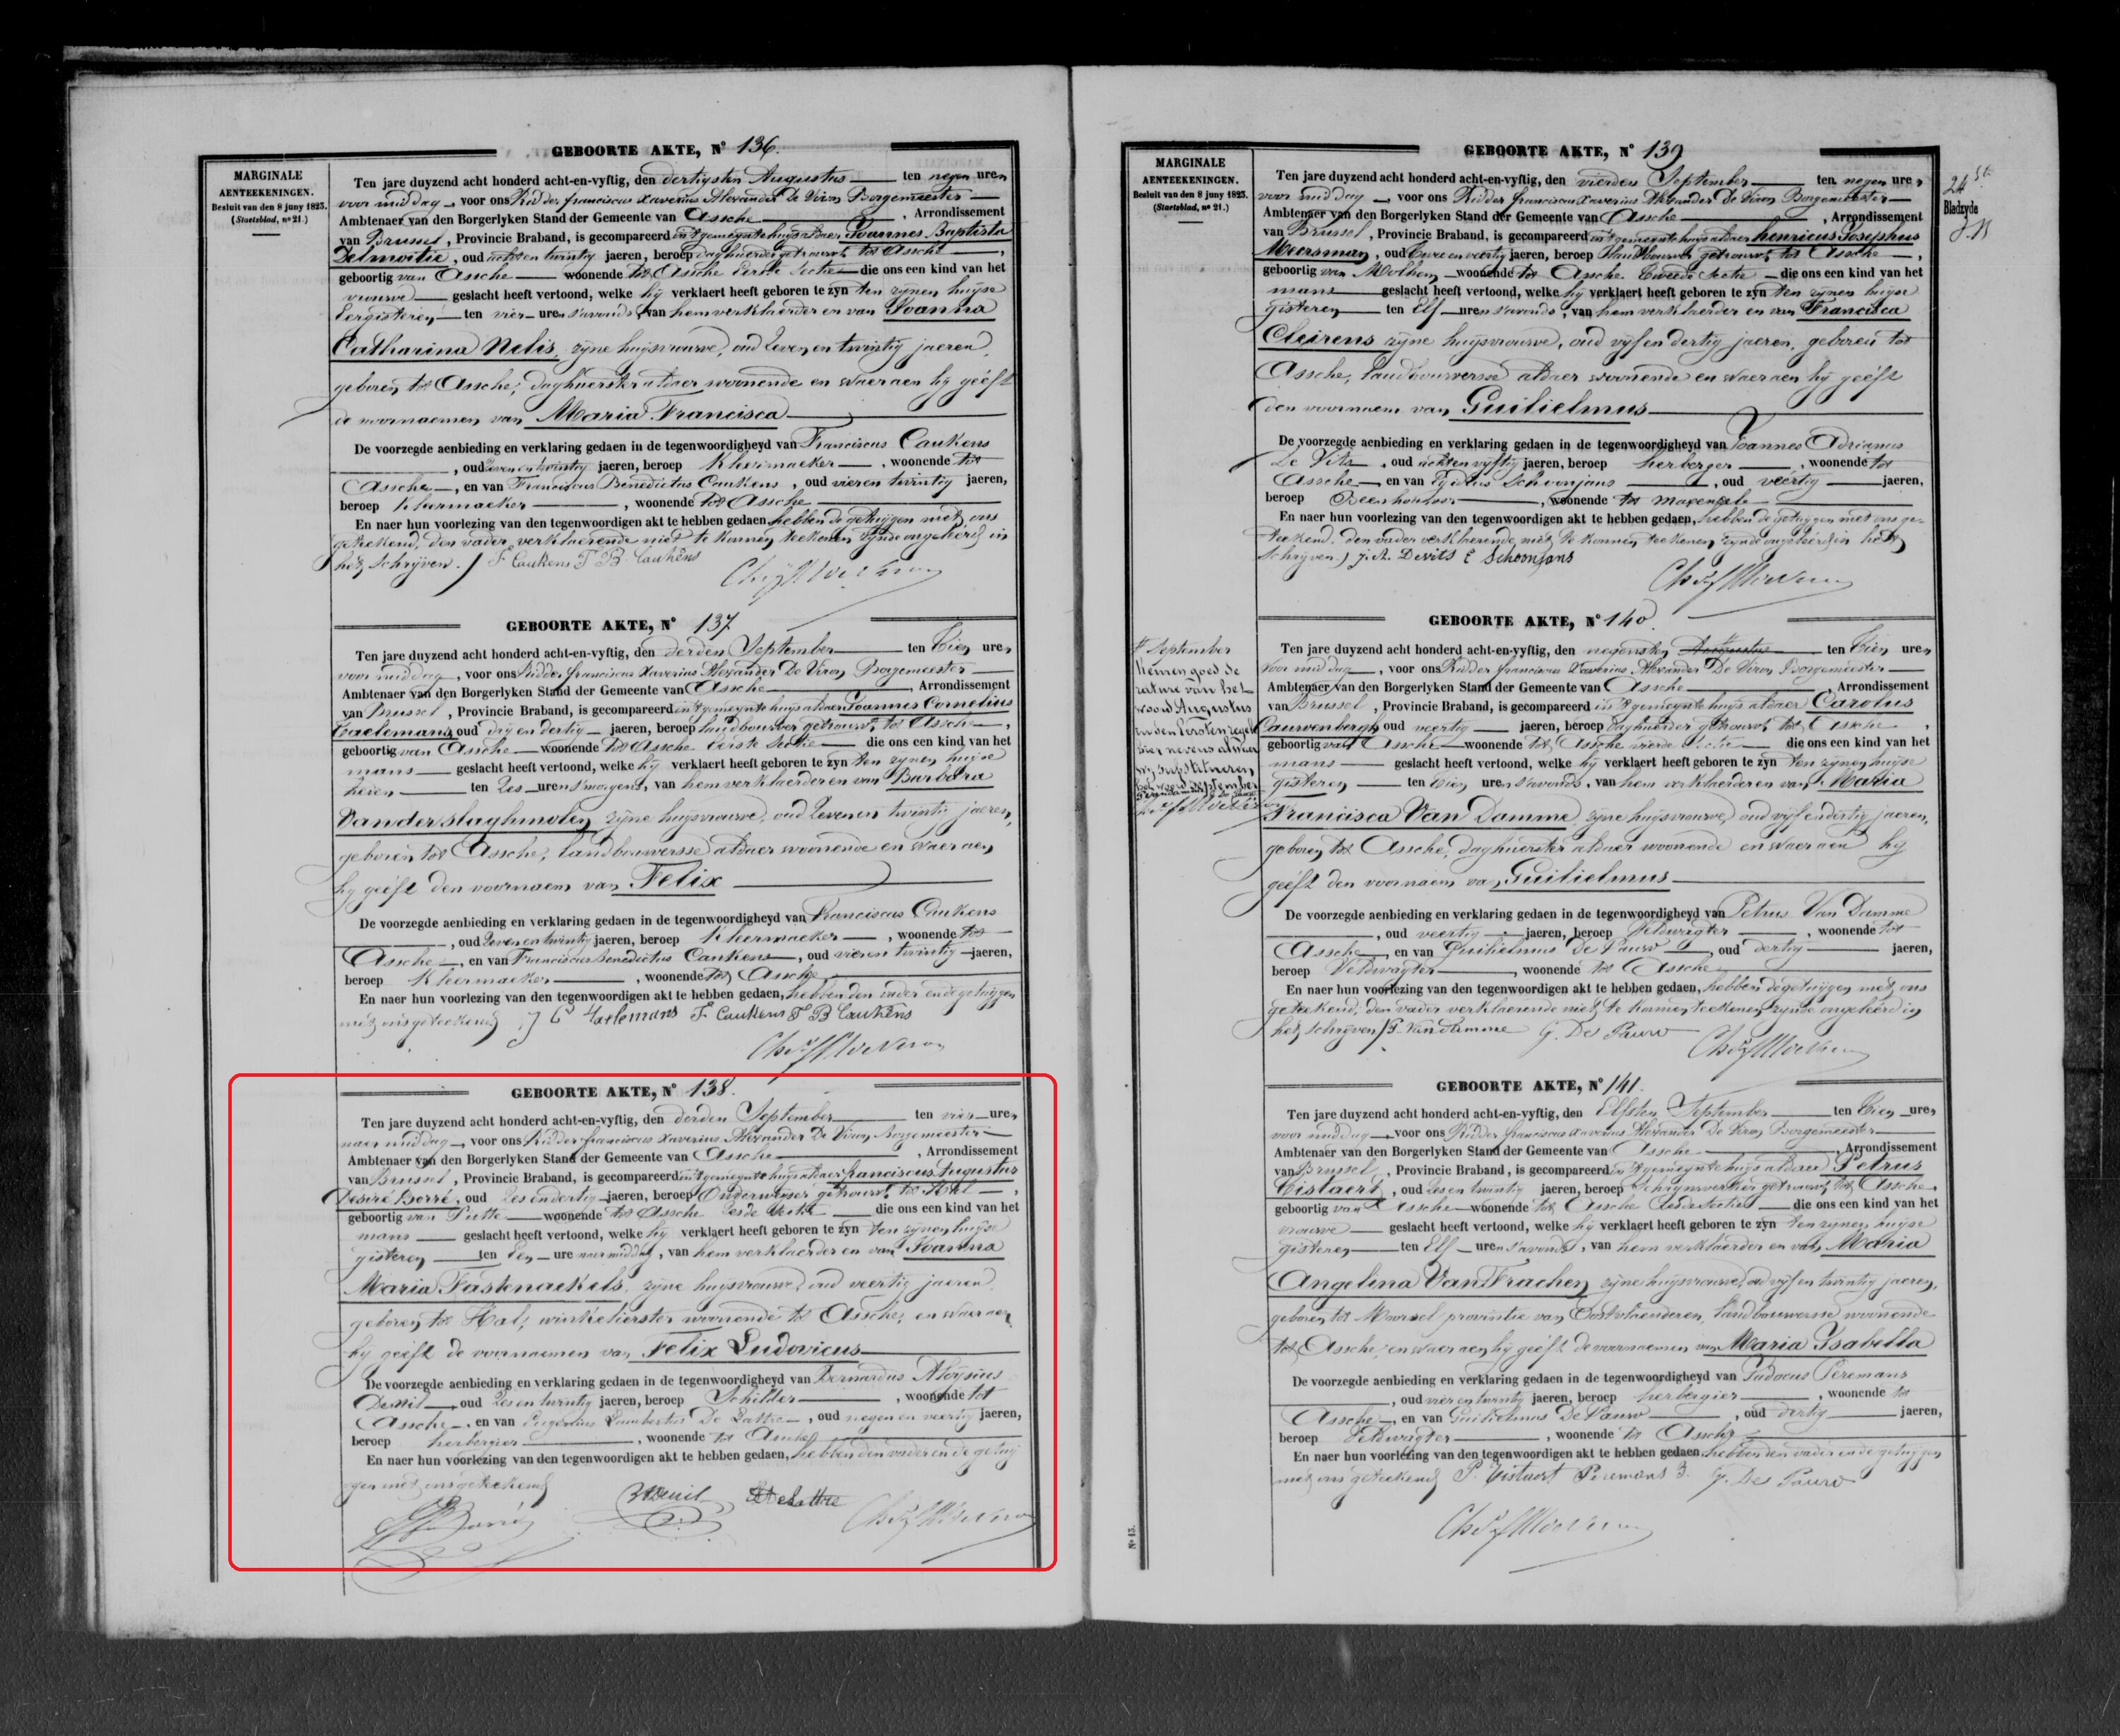 GEBOORTE AKTE, N° 136.
MARGINALE
AENTEEKENINGEN.
Besluit van den 8 juny 1823.
(Staetsblad, n° 21.)
Ten jare duyzend acht honderd acht-en-vyftig, den dertigsten Augustus ten negen uren
voor middag, voor ons Ridder franciscus xaverius Alexander De Viron Borgemeester
Ambtenaer van den Borgerlyken Stand der Gemeente van Assche, Arrondissement
van Brussel, Provincie Braband, is gecompareerd in 't gemeynte huys aldaer Joannes Baptista
Delmoitié, oud achten twintig jaeren, beroep daghuerder getrouwt tot Assche,
geboortig van Assche woonende tot Assche derde sectie die ons een kind van het
vrouwe geslacht heeft vertoond, welke hy verklaert heeft geboren te zyn ten zynen huyse
Eergisteren ten vier uren s'avonds, van hem verklaerder en van Joanna
Catharina Nelis, zyne huysvrouwe, oud zeven en twintig jaeren,
geboren tot Assche, daghuerster aldaer woonende en waeraen hy geéft
de voornaemen van Maria Francisca
De voorzegde aenbieding en verklaring gedaen in de tegenwoordigheyd van Franciscus Caukens
, oud zeven en twintig jaeren, beroep Kleermaeker, woonende tot
Assche, en van Franciscus Benedictus Caukens, oud vieren twintig jaeren,
beroep Kleermaeker, woonende tot Assche
En naer hun voorlezing van den tegenwoordigen akt te hebben gedaen, hebben de getuygen met ons
geteekend, den vader, verklaerende niet te konnen teekenen zynde ongeleerd in
het schryven. F Caukens F B Caukens
GEBOORTE AKTE, N° 137
Ten jare duyzend acht honderd acht-en-vyftig, den derden September ten tien uren
voor middag, voor ons Ridder franciscus xaverius Alexander De Viron Borgemeester
Ambtenaer van den Borgerlyken Stand der Gemeente van Assche, Arrondissement
van Brussel, Provincie Braband, is gecompareerd in 't gemeynte huys aldaer Joannes Cornelius
Taelemans, oud dry en dertig jaeren, beroep landbouwer getrouwt tot Assche,
geboortig van Assche woonende tot Assche eerste sectie die ons een kind van het
mans geslacht heeft vertoond, welke hy verklaert heeft geboren te zyn ten zynen huyse
heden ten zes uren s'morgens, van hem verklaerder en van Barbara
Vanderslaghmolen zyne huysvrouwe, oud zeven en twintig jaeren,
geboren tot Assche, landbouwersse aldaer woonende en waeraen
hy geéft den voornaem van Felix
De voorzegde aenbieding en verklaring gedaen in de tegenwoordigheyd van Franciscus Caukens
, oud zeven en twintig jaeren, beroep Kleermaeker, woonende tot
Assche, en van Franciscus Benedictus Caukens, oud vieren twintig jaeren,
beroep Kleermaeker, woonende tot Assche
En naer hun voorlezing van den tegenwoordigen akt te hebben gedaen, hebben den vader en de getuygen
met ons geteekend J C Taelemans F Caukens F B Caukens
GEBOORTE AKTE, N° 138.
Ten jare duyzend acht honderd acht-en-vyftig, den derden September ten vier uren
naer middag, voor ons Ridder franciscus xaverius Alexander De Viron Borgemeester
Ambtenaer van den Borgerlyken Stand der Gemeente van Assche, Arrondissement
van Brussel, Provincie Braband, is gecompareerd in 't gemeynte huys aldaer franciscus Augustus
Desiré Berré, oud zes en dertig jaeren, beroep Onderwyser getrouwt tot Hal,
geboortig van Putte woonende tot Assche zesde sectie die ons een kind van het
mans geslacht heeft vertoond, welke hy verklaert heeft geboren te zyn ten zynen huyse
gisteren ten Een ure naermiddag, van hem verklaerder en van Joanna
Maria Fastenaekels, zyne huysvrouwe, oud veertig jaeren,
geboren tot Hal, winkelierster woonende tot Assche, en waeraen
hy geéft de voornaemen van Felix Ludovicus
De voorzegde aenbieding en verklaring gedaen in de tegenwoordigheyd van Bernardus Aloysius
, oud zes en twintig jaeren, beroep Schilder, woonende tot
Assche, en van Eugenius Lambertus De Lattre, oud negen en veertig jaeren,
beroep herbergier, woonende tot Assche
En naer hun voorlezing van den tegenwoordigen akt te hebben gedaen, hebben den vader en de getuy
gen met ons geteekend
GEBOORTE AKTE, N° 139
MARGINALE
AENTEEKENINGEN.
Besluit van den 8 juny 1823.
(Staetsblad, n° 21.)
24ste
Bladzyde
Ten jare duyzend acht honderd acht-en-vyftig, den vierden September ten negen uren
voor middag, voor ons Ridder franciscus xaverius Alexander De Viron Borgemeester
Ambtenaer van den Borgerlyken Stand der Gemeente van Assche, Arrondissement
van Brussel, Provincie Braband, is gecompareerd in 't gemeynte huys aldaer henricus Josephus
Meersman, oud twee en veertig jaeren, beroep landbouwer getrouwt tot Assche,
geboortig van Molhem woonende tot Assche tweede sectie die ons een kind van het
mans geslacht heeft vertoond, welke hy verklaert heeft geboren te zyn ten zynen huyse
gisteren ten Elf uren s'avonds, van hem verklaerder en van Francisca
Cleirens zyne huysvrouwe, oud vyf en dertig jaeren, geboren tot
Assche, landbouwersse aldaer woonende en waeraen hy geéft
den voornaem van Guilielmus
De voorzegde aenbieding en verklaring gedaen in de tegenwoordigheyd van Joannes Adrianus
De Vits, oud achten vyftig jaeren, beroep herberger, woonende tot
Assche, en van Egidius Schoonjans, oud veertig jaeren,
beroep Beenhouwer, woonende tot Maxenzele
En naer hun voorlezing van den tegenwoordigen akt te hebben gedaen, hebben de getuygen met ons ge-
teekend, den vader verklaerende niet te konnen teekenen zynde ongeleerd in het
schryven. J. A. Devits E Schoonjans
GEBOORTE AKTE, N° 140.
Ten jare duyzend acht honderd acht-en-vyftig, den negensten Augustus ten tien uren
voor middag, voor ons Ridder franciscus xaverius Alexander De Viron Borgemeester
Ambtenaer van den Borgerlyken Stand der Gemeente van Assche, Arrondissement
van Brussel, Provincie Braband, is gecompareerd in 't gemeynte huys aldaer Carolus
Cauwenbergh, oud veertig jaeren, beroep daghuerder getrouwt tot Assche,
geboortig van Assche woonende tot Assche vierde sectie die ons een kind van het
mans geslacht heeft vertoond, welke hy verklaert heeft geboren te zyn ten zynen huyse
gisteren ten tien uren s'avonds, van hem verklaerder en van Maria
Francisca Van Damme, zyne huysvrouwe, oud vyf en dertig jaeren,
geboren tot Assche, daghuerster aldaer woonende en waeraen hy
geéft den voornaem van Guilielmus
De voorzegde aenbieding en verklaring gedaen in de tegenwoordigheyd van Petrus Van Damme
, oud veertig jaeren, beroep Veldwagter, woonende tot
Assche, en van Guilielmus De Pauw, oud dertig jaeren,
beroep Veldwagter, woonende tot Assche
En naer hun voorlezing van den tegenwoordigen akt te hebben gedaen, hebben de getuygen met ons
geteekend, den vader verklaerende niet te konnen teekenen, zynde ongeleerd in
het schryven P. Vandamme G. De Pauw
September
kennen goed de
rature van het
woord Augustus
in den eersten regel
hier nevens alwaer
wy substitueren
het woord September
GEBOORTE AKTE, N° 141.
Ten jare duyzend acht honderd acht-en-vyftig, den Elfsten September ten tien uren
voor middag, voor ons Ridder franciscus xaverius Alexander De Viron Borgemeester
Ambtenaer van den Borgerlyken Stand der Gemeente van Assche, Arrondissement
van Brussel, Provincie Braband, is gecompareerd in 't gemeynte huys aldaer Petrus
Tistaert, oud zes en twintig jaeren, beroep Schrynwerker getrouwt tot Assche,
geboortig van Assche woonende tot Assche sectie die ons een kind van het
vrouwe geslacht heeft vertoond, welke hy verklaert heeft geboren te zyn ten zynen huyse
gisteren ten Elf uren s'avonds, van hem verklaerder en van Maria
Angelina Van Frachen zyne huysvrouwe, oud vyf en twintig jaeren,
geboren tot Moorsel provintie van Oostvlaenderen, landbouwersse woonende
tot Assche, en waeraen hy geéft de voornaemen van Maria Ysabella
De voorzegde aenbieding en verklaring gedaen in de tegenwoordigheyd van Judocus Peremans
, oud vier en twintig jaeren, beroep herbergier, woonende tot
Assche, en van Guilielmus De Pauw, oud dertig jaeren,
beroep Veldwagter, woonende tot Assche
En naer hun voorlezing van den tegenwoordigen akt te hebben gedaen, hebben den vader en de getuygen
met ons geteekend P. Tistaert Peremans J. G. De Pauw
N° 13.